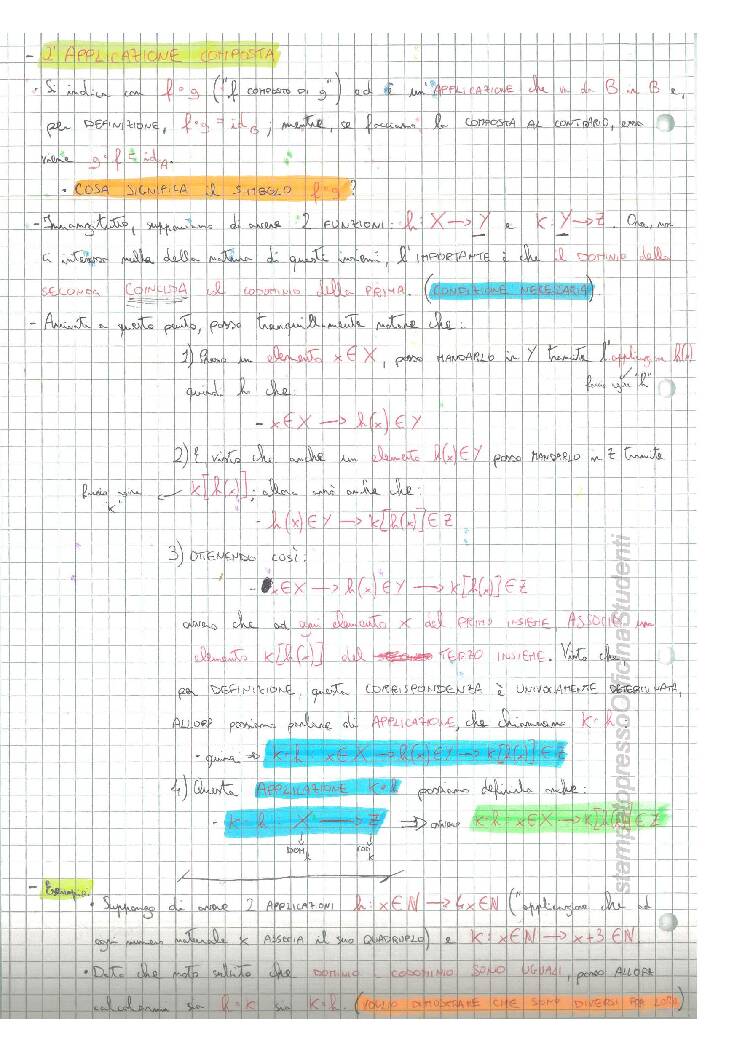 - L'APPLICAZIONE COMPOSTA
• Si indica con f∘g ("f COMPOSTO DI g") ed è un'APPLICAZIONE che va da B in B e,
per DEFINIZIONE, f∘g = id_B; mentre, se facciamo la COMPOSTA AL CONTRARIO, essa
viene g∘f = id_A.
• COSA SIGNIFICA il SIMBOLO f∘g?
- Innanzitutto, supponiamo di avere 2 FUNZIONI: h: X → Y e K: Y → Z. Ora, non
ci interessa nulla della natura di questi insiemi, l'IMPORTANTE è che il DOMINIO della
SECONDA COINCIDA col CODOMINIO della PRIMA. (CONDIZIONE NECESSARIA)
- Arrivati a questo punto, posso tranquillamente notare che:
1) Preso un elemento x ∈ X, posso MANDARLO in Y tramite l'applicazione h(x)
quindi che:
- x ∈ X → h(x) ∈ Y
2) E visto che anche un elemento h(x) ∈ Y posso MANDARLO in Z tramite
K[h(x)]; allora avrò anche che:
- h(x) ∈ Y → K[h(x)] ∈ Z
3) OTTENENDO COSÌ:
- x ∈ X → h(x) ∈ Y → K[h(x)] ∈ Z
ovvero che ad ogni elemento X del PRIMO INSIEME, ASSOCIO un
elemento K[h(x)] del TERZO INSIEME. Visto che,
per DEFINIZIONE, questa CORRISPONDENZA è UNIVOCAMENTE DETERMINATA,
ALLORA possiamo parlare di APPLICAZIONE, che chiameremo K∘h.
• K∘h: x ∈ X → h(x) ∈ Y → K[h(x)] ∈ Z
4) Questa APPLICAZIONE K∘h possiamo definirla anche:
- K∘h: X → Z ⇒ ovvero K∘h: x ∈ X → K[h(x)] ∈ Z
DOM K COD K
- Esempio:
• Suppongo di avere 2 APPLICAZIONI h: x ∈ N → 4x ∈ N ("applicazione che ad
ogni numero naturale x ASSOCIA il suo QUADRUPLO) e K: x ∈ N → x+3 ∈ N.
• Dato che noto subito che DOMINIO e CODOMINIO SONO UGUALI, posso ALLORA
calcolarmi sia h∘K sia K∘h. (VOGLIO DIMOSTRARE CHE SONO DIVERSI FRA LORO)
stampatopressoOfficinaStudenti